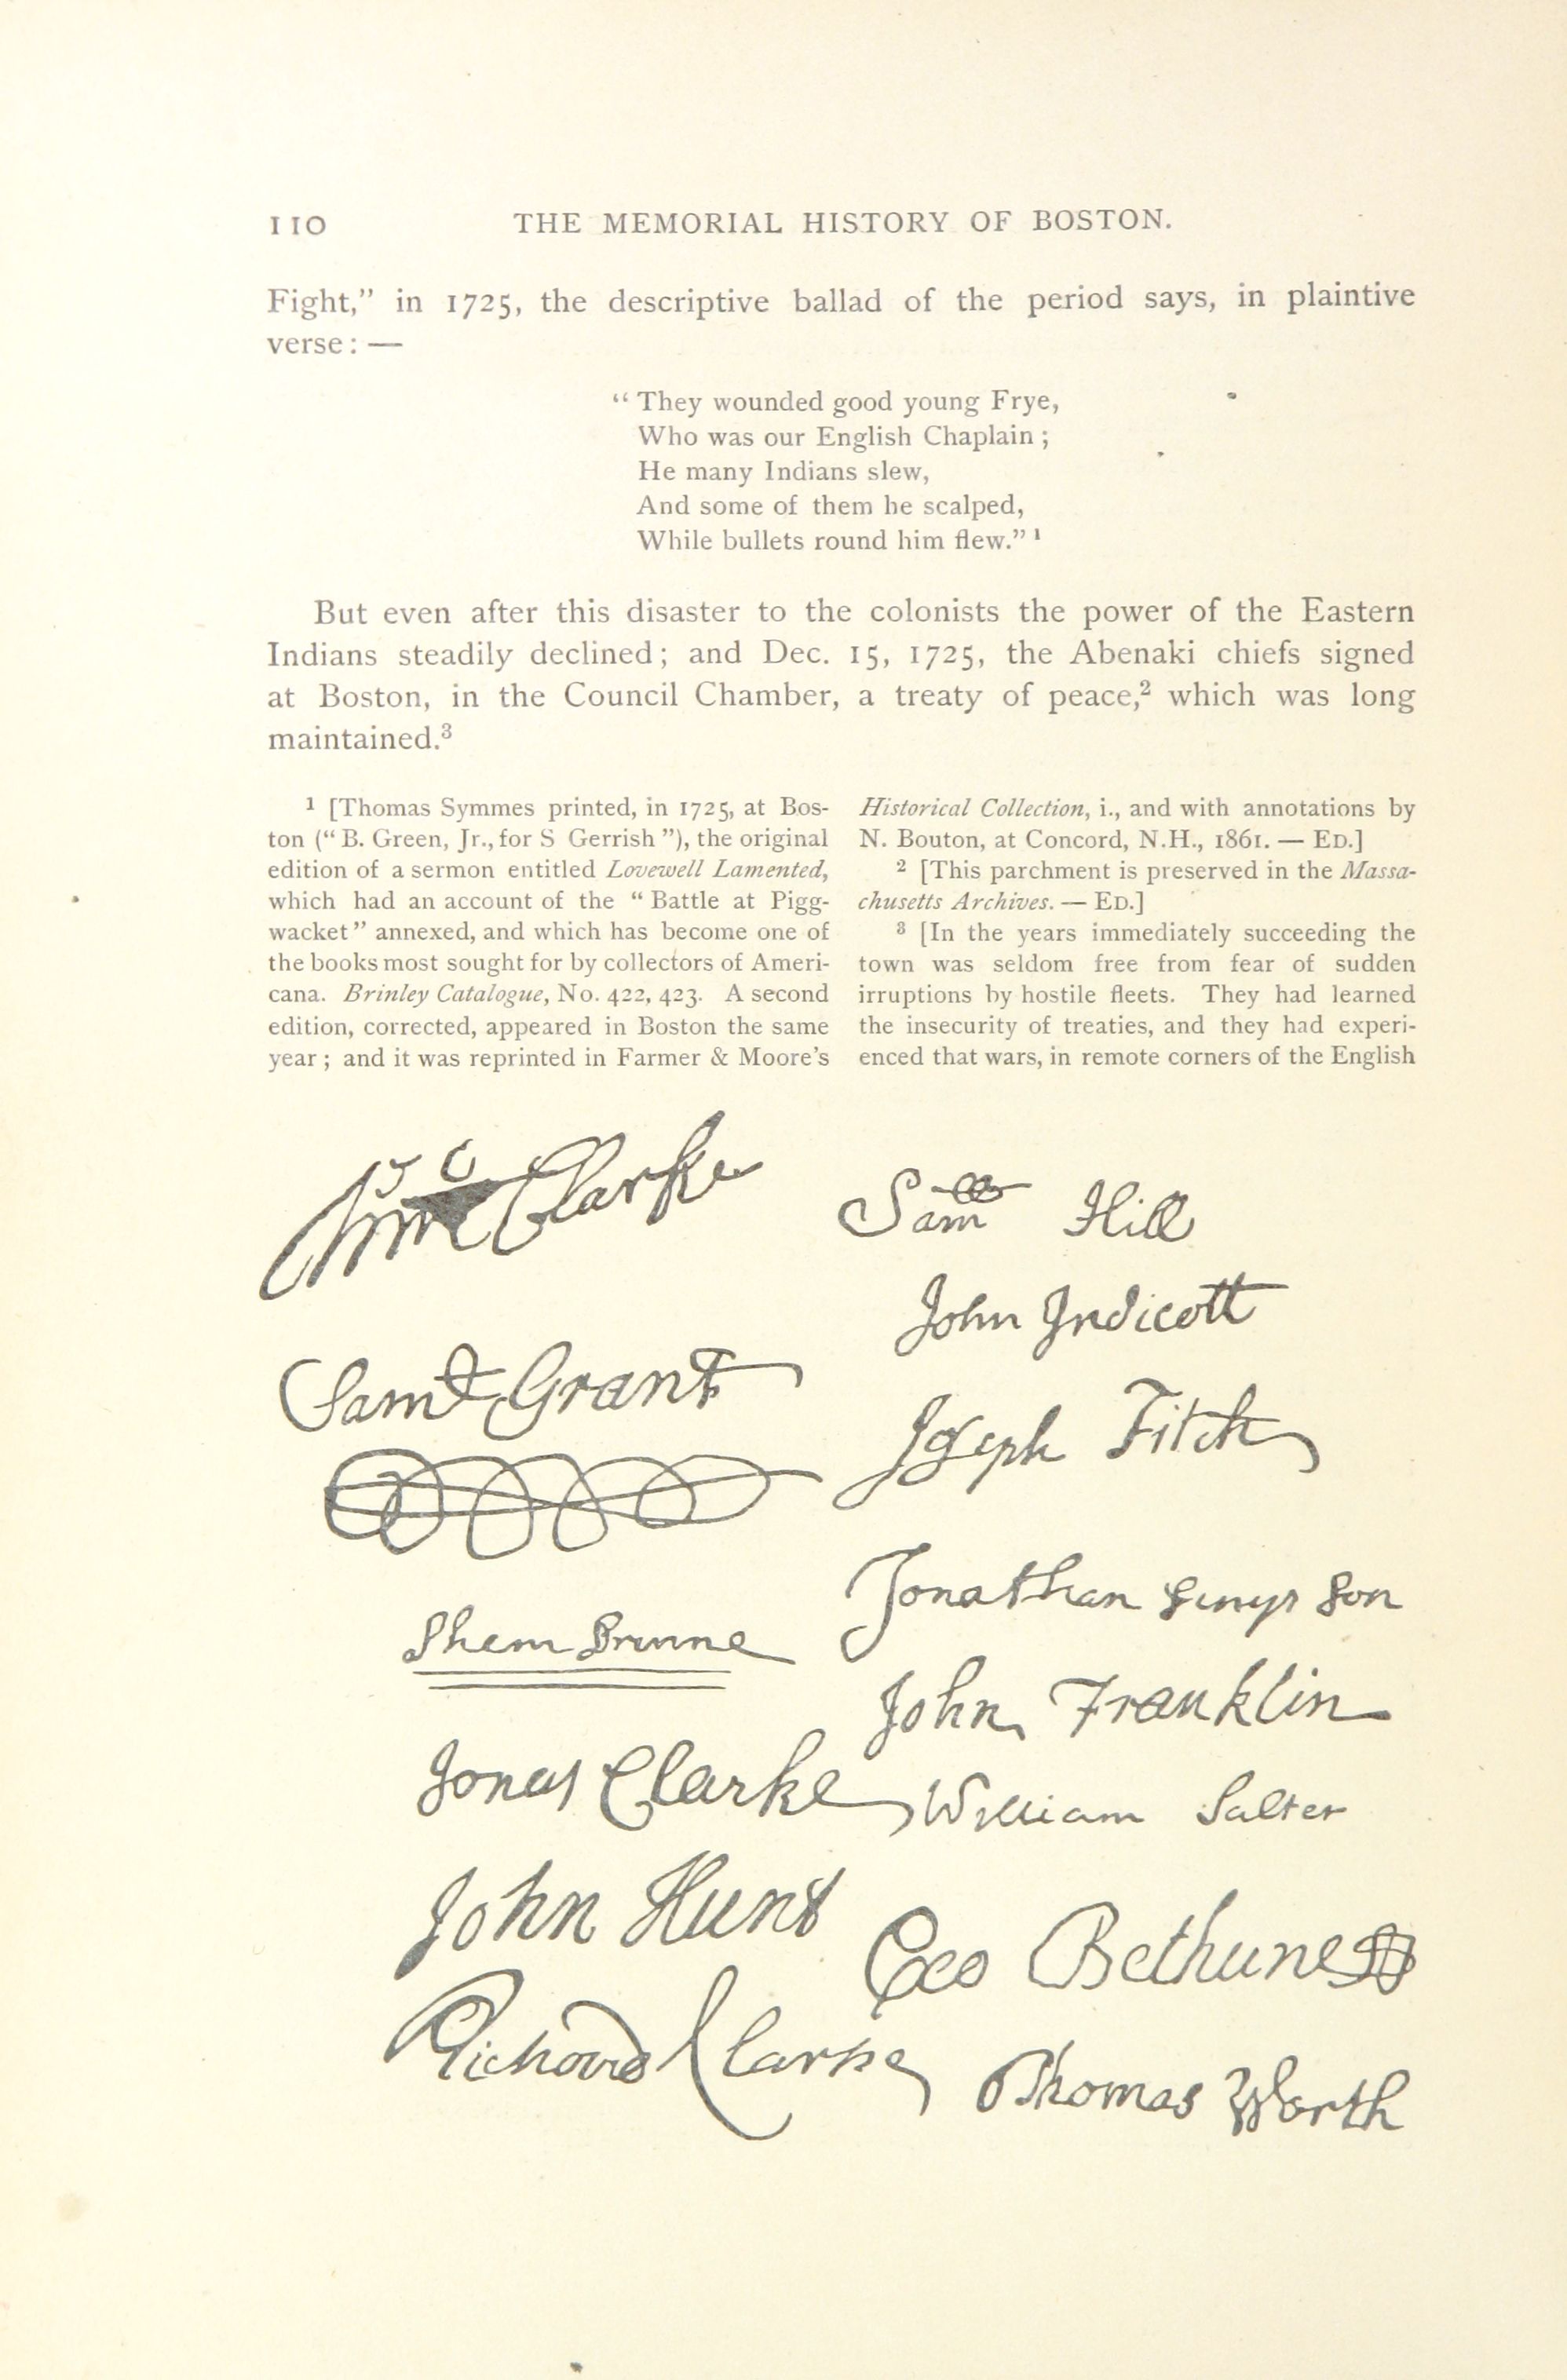 110 THE MEMORIAL HISTORY OF BOSTON.
Fight,” in 1725, the descriptive ballad of the period says, in plaintive
verse: —
“They wounded good young Frye,
Who was our English Chaplain;
He many Indians slew,
And some of them he scalped,
While bullets round him flew.” ¹
But even after this disaster to the colonists the power of the Eastern
Indians steadily declined; and Dec. 15, 1725, the Abenaki chiefs signed
at Boston, in the Council Chamber, a treaty of peace,² which was long
maintained.³
¹ [Thomas Symmes printed, in 1725, at Bos-
ton (“B. Green, Jr., for S Gerrish”), the original
edition of a sermon entitled Lovewell Lamented,
which had an account of the “Battle at Pigg-
wacket” annexed, and which has become one of
the books most sought for by collectors of Ameri-
cana. Brinley Catalogue, No. 422, 423. A second
edition, corrected, appeared in Boston the same
year; and it was reprinted in Farmer & Moore’s
Historical Collection, i., and with annotations by
N. Bouton, at Concord, N.H., 1861. — ED.]
² [This parchment is preserved in the Massa-
chusetts Archives. — ED.]
³ [In the years immediately succeeding the
town was seldom free from fear of sudden
irruptions by hostile fleets. They had learned
the insecurity of treaties, and they had experi-
enced that wars, in remote corners of the English
Wm Clarke
Samll Grant
Shem Brunne
Jonas Clarke
John Hunt
Richard Clarke
Samll Hill
John Indicott
Joseph Fitch
Jonathan Simpson
John Franklin
William Salter
Geo Bethune
Thomas Worth